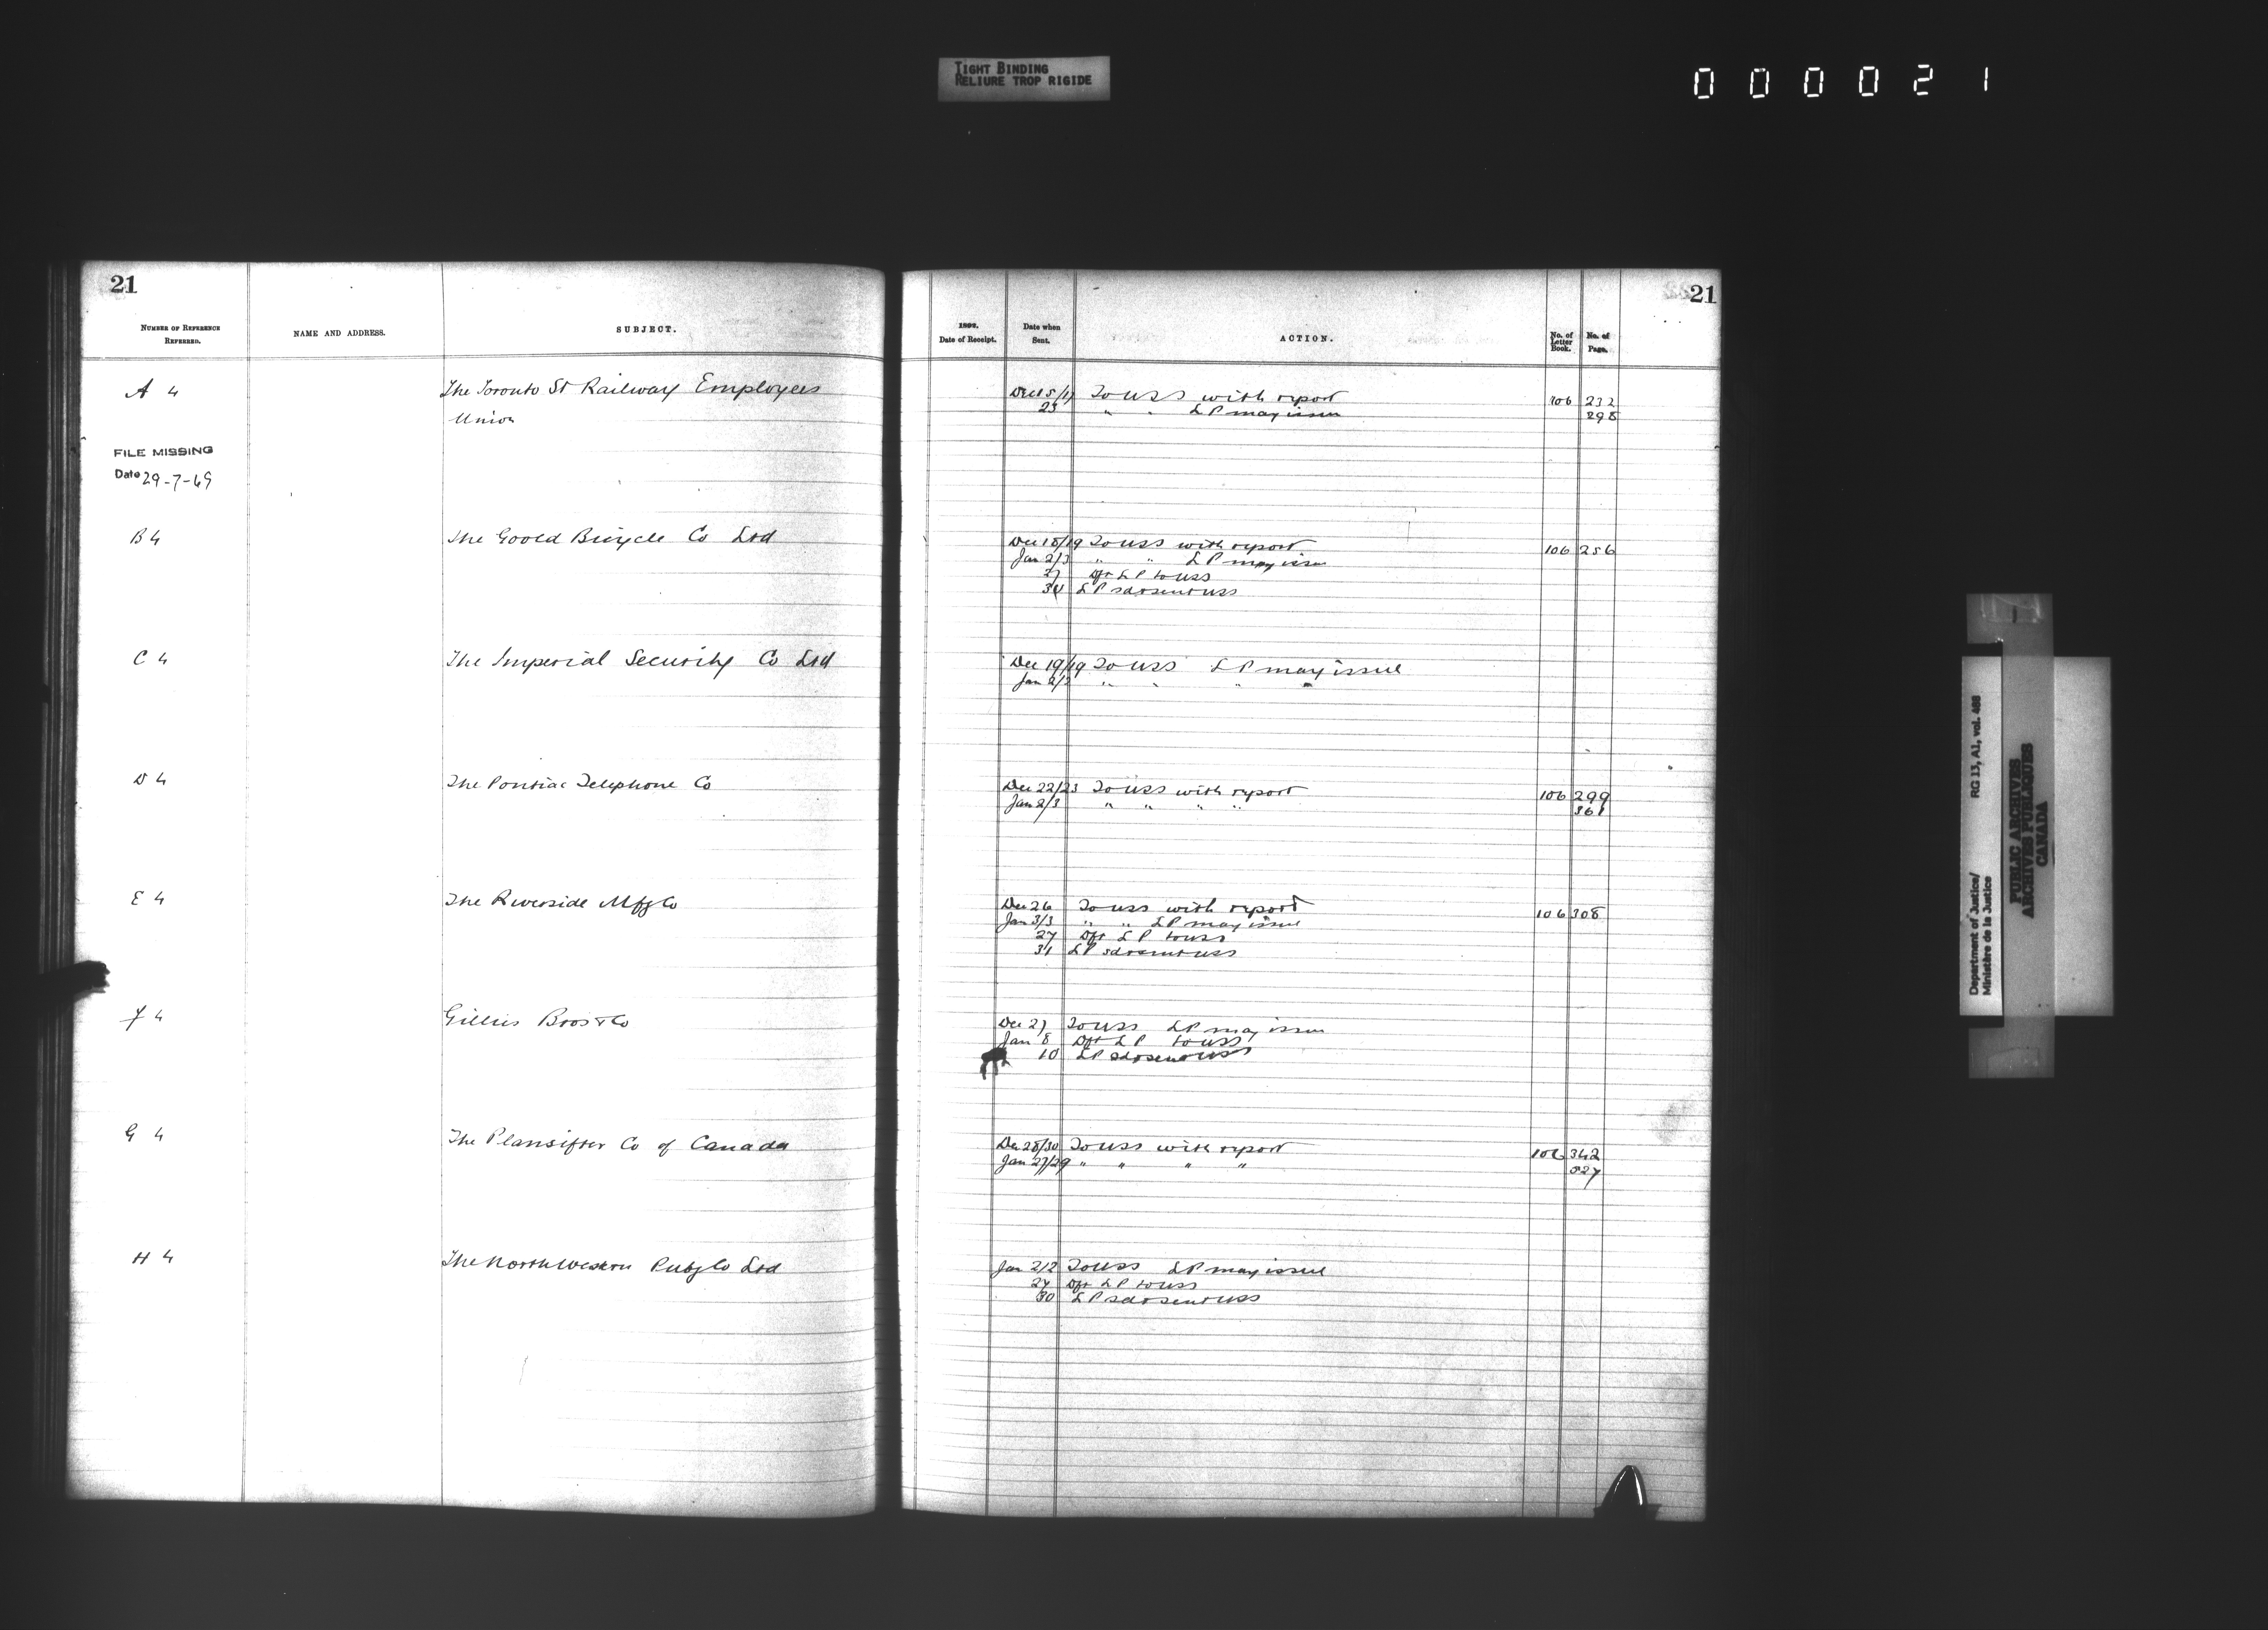 TIGHT BINDING
RELIURE TROP RIGIDE
000021
21
NUMBER OF REFERENCE REFERRED.
NAME AND ADDRESS.
SUBJECT.
A 4
The Toronto St Railway Employees
Union
FILE MISSING
Date 29-7-69
B 4
The Goold Bicycle Co Ltd
C 4
The Imperial Security Co Ltd
D 4
The Pontiac Telephone Co
E 4
The Riverside Mfg Co
F 4
Gillies Bros & Co
G 4
The Plansifter Co of Canada
H 4
The North Western Pubg Co Ltd
21
1892.
Date of Receipt.
Date when Sent.
ACTION.
No. of Letter Book.
No. of Page.
Dec 15/17 To USS with report 106 232
23 " " LP may issue 298
Dec 18/19 To USS with report 106 256
Jan 2/3 " " LP may issue
27 Dft LP to USS
30 LP sd & sent USS
Dec 19/19 To USS LP may issue
Jan 2/2 " " " "
Dec 22/23 To USS with report 106 299
Jan 2/3 " " " " 361
Dec 26 To USS with report 106 308
Jan 3/3 " " LP may issue
27 Dft LP to USS
31 LP sd & sent USS
Dec 27 To USS LP may issue
Jan 8 Dft LP to USS
10 LP sd & sent USS
Dec 28/30 To USS with report 106 342
Jan 27/29 " " " " 527
Jan 2/2 To USS LP may issue
27 Dft LP to USS
30 LP sd & sent USS
Department of Justice/ RG 13, A1, vol. 488
Ministère de la Justice
PUBLIC ARCHIVES
ARCHIVES PUBLIQUES
CANADA